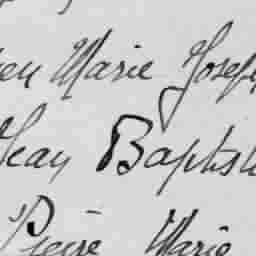 en Marie Joseph
Jean Baptiste
Pierre Marie